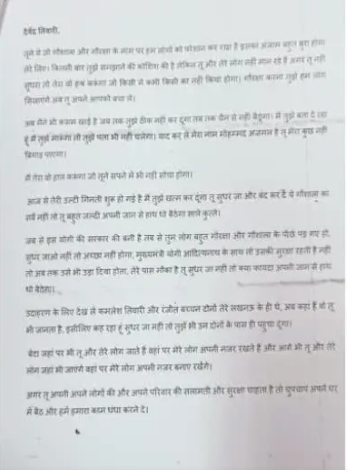 देवेंद्र तिवारी,
तूने ये जो गौशाला और गौरक्षा के नाम पर हम लोगों को परेशान कर रखा है इसका अंजाम बहुत बुरा होगा
तेरे लिए। कितनी बार तुझे समझाने की कोशिश की है लेकिन तू और तेरे लोग नहीं मान रहे हैं अगर तू नहीं
सुधरा तो तेरा वो हश्र करूंगा जो किसी ने कभी किसी का नहीं किया होगा। गौरक्षा करना तुझे हम लोग
सिखाएंगे अब तू अपने आपको बचा ले।
अब मैंने भी कसम खाई है जब तक तुझे ठीक नहीं कर दूंगा तब तक चैन से नहीं बैठूंगा। मैं तुझे बता दे रहा
हूं मैं तुझे मारूंगा तो तुझे पता भी नहीं चलेगा। याद कर ले मेरा नाम मोहम्मद अजमल है तू मेरा कुछ नहीं
बिगाड़ पाएगा।
मैं तेरा वो हाल करूंगा जो तूने सपने में भी नहीं सोचा होगा।
आज से तेरी उल्टी गिनती शुरू हो गई है मैं तुझे खत्म कर दूंगा तू सुधर जा और बंद कर दे ये गौशाला का
सर्वे नहीं तो तू बहुत जल्दी अपनी जान से हाथ धो बैठेगा साले कुत्ते।
जब से इस योगी की सरकार की बनी है तब से तुम लोग बहुत गौरक्षा और गौशाला के पीछे पड़ गए हो,
सुधर जाओ नहीं तो अच्छा नहीं होगा, मुख्यमंत्री योगी आदित्यनाथ के साथ तो उसकी सुरक्षा रहती है नहीं
तो अब तक उसे भी उड़ा दिया होता, तेरे पास मौका है तू सुधर जा नहीं तो क्या फायदा अपनी जान से हाथ
धो बैठेगा।
उदाहरण के लिए देख ले कमलेश तिवारी और रंजीत बच्चन दोनों तेरे लखनऊ के ही थे, अब कहां हैं वो तू
भी जानता है, इसीलिए कह रहा हूं सुधर जा नहीं तो तुझे भी उन दोनों के पास ही पहुंचा दूंगा।
बेटा जहां पर भी तू और तेरे लोग जाते हैं वहां पर मेरे लोग अपनी नजर रखते हैं और आगे भी तू और तेरे
लोग जहां भी जाएंगे वहां पर मेरे लोग अपनी नजर बनाए रखेंगे।
अगर तू अपनी अपने लोगों की और अपने परिवार की सलामती और सुरक्षा चाहता है तो चुपचाप अपने घर
में बैठ और हमें हमारा काम धंधा करने दे।